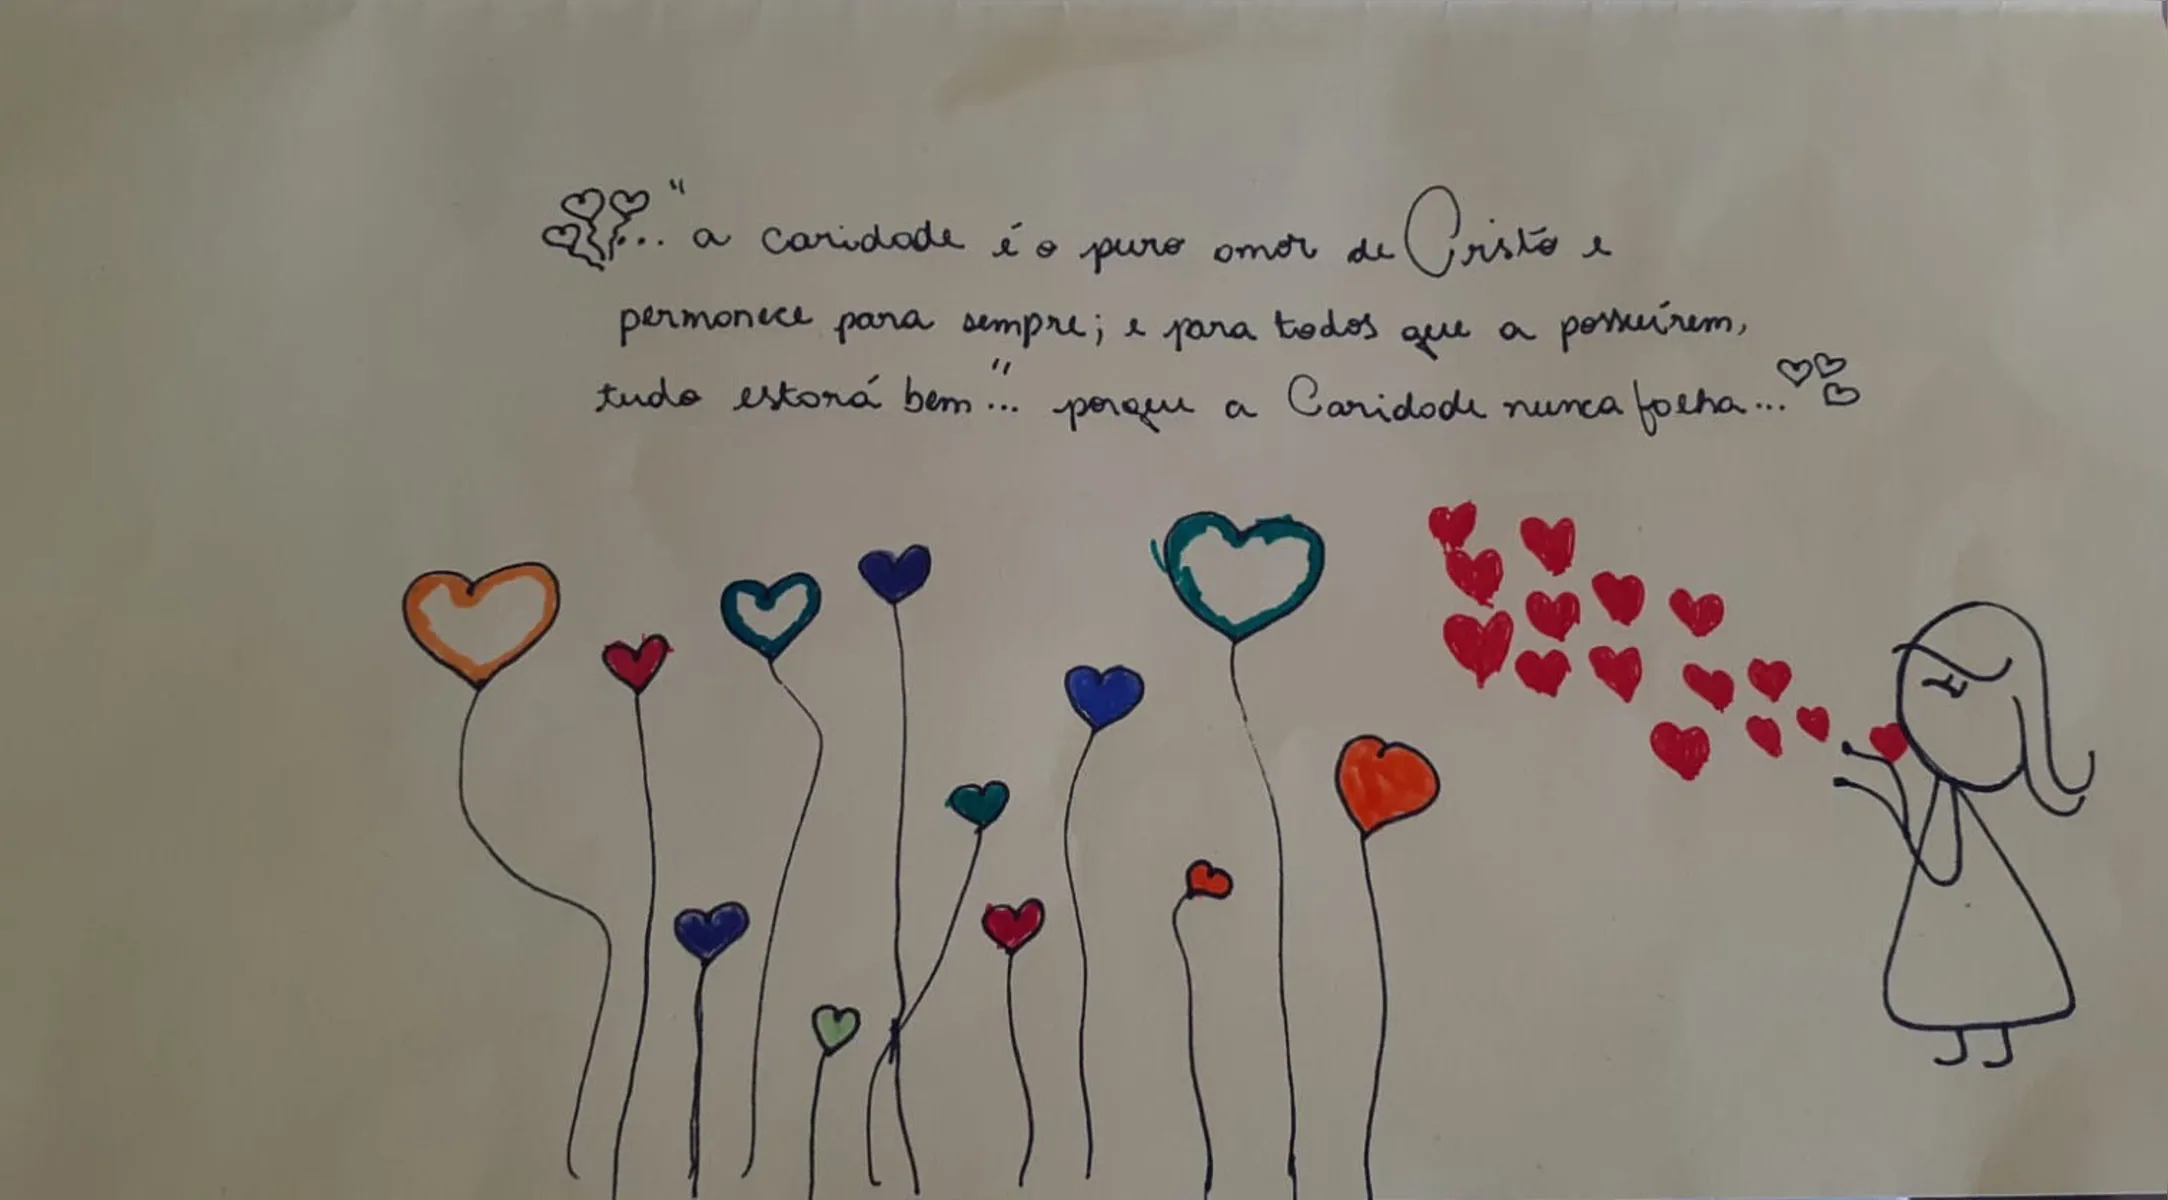 ..." a caridade é o puro amor de Cristo e
permanece para sempre; e para todos que a possuírem,
tudo estará bem"... porque a Caridade nunca falha...